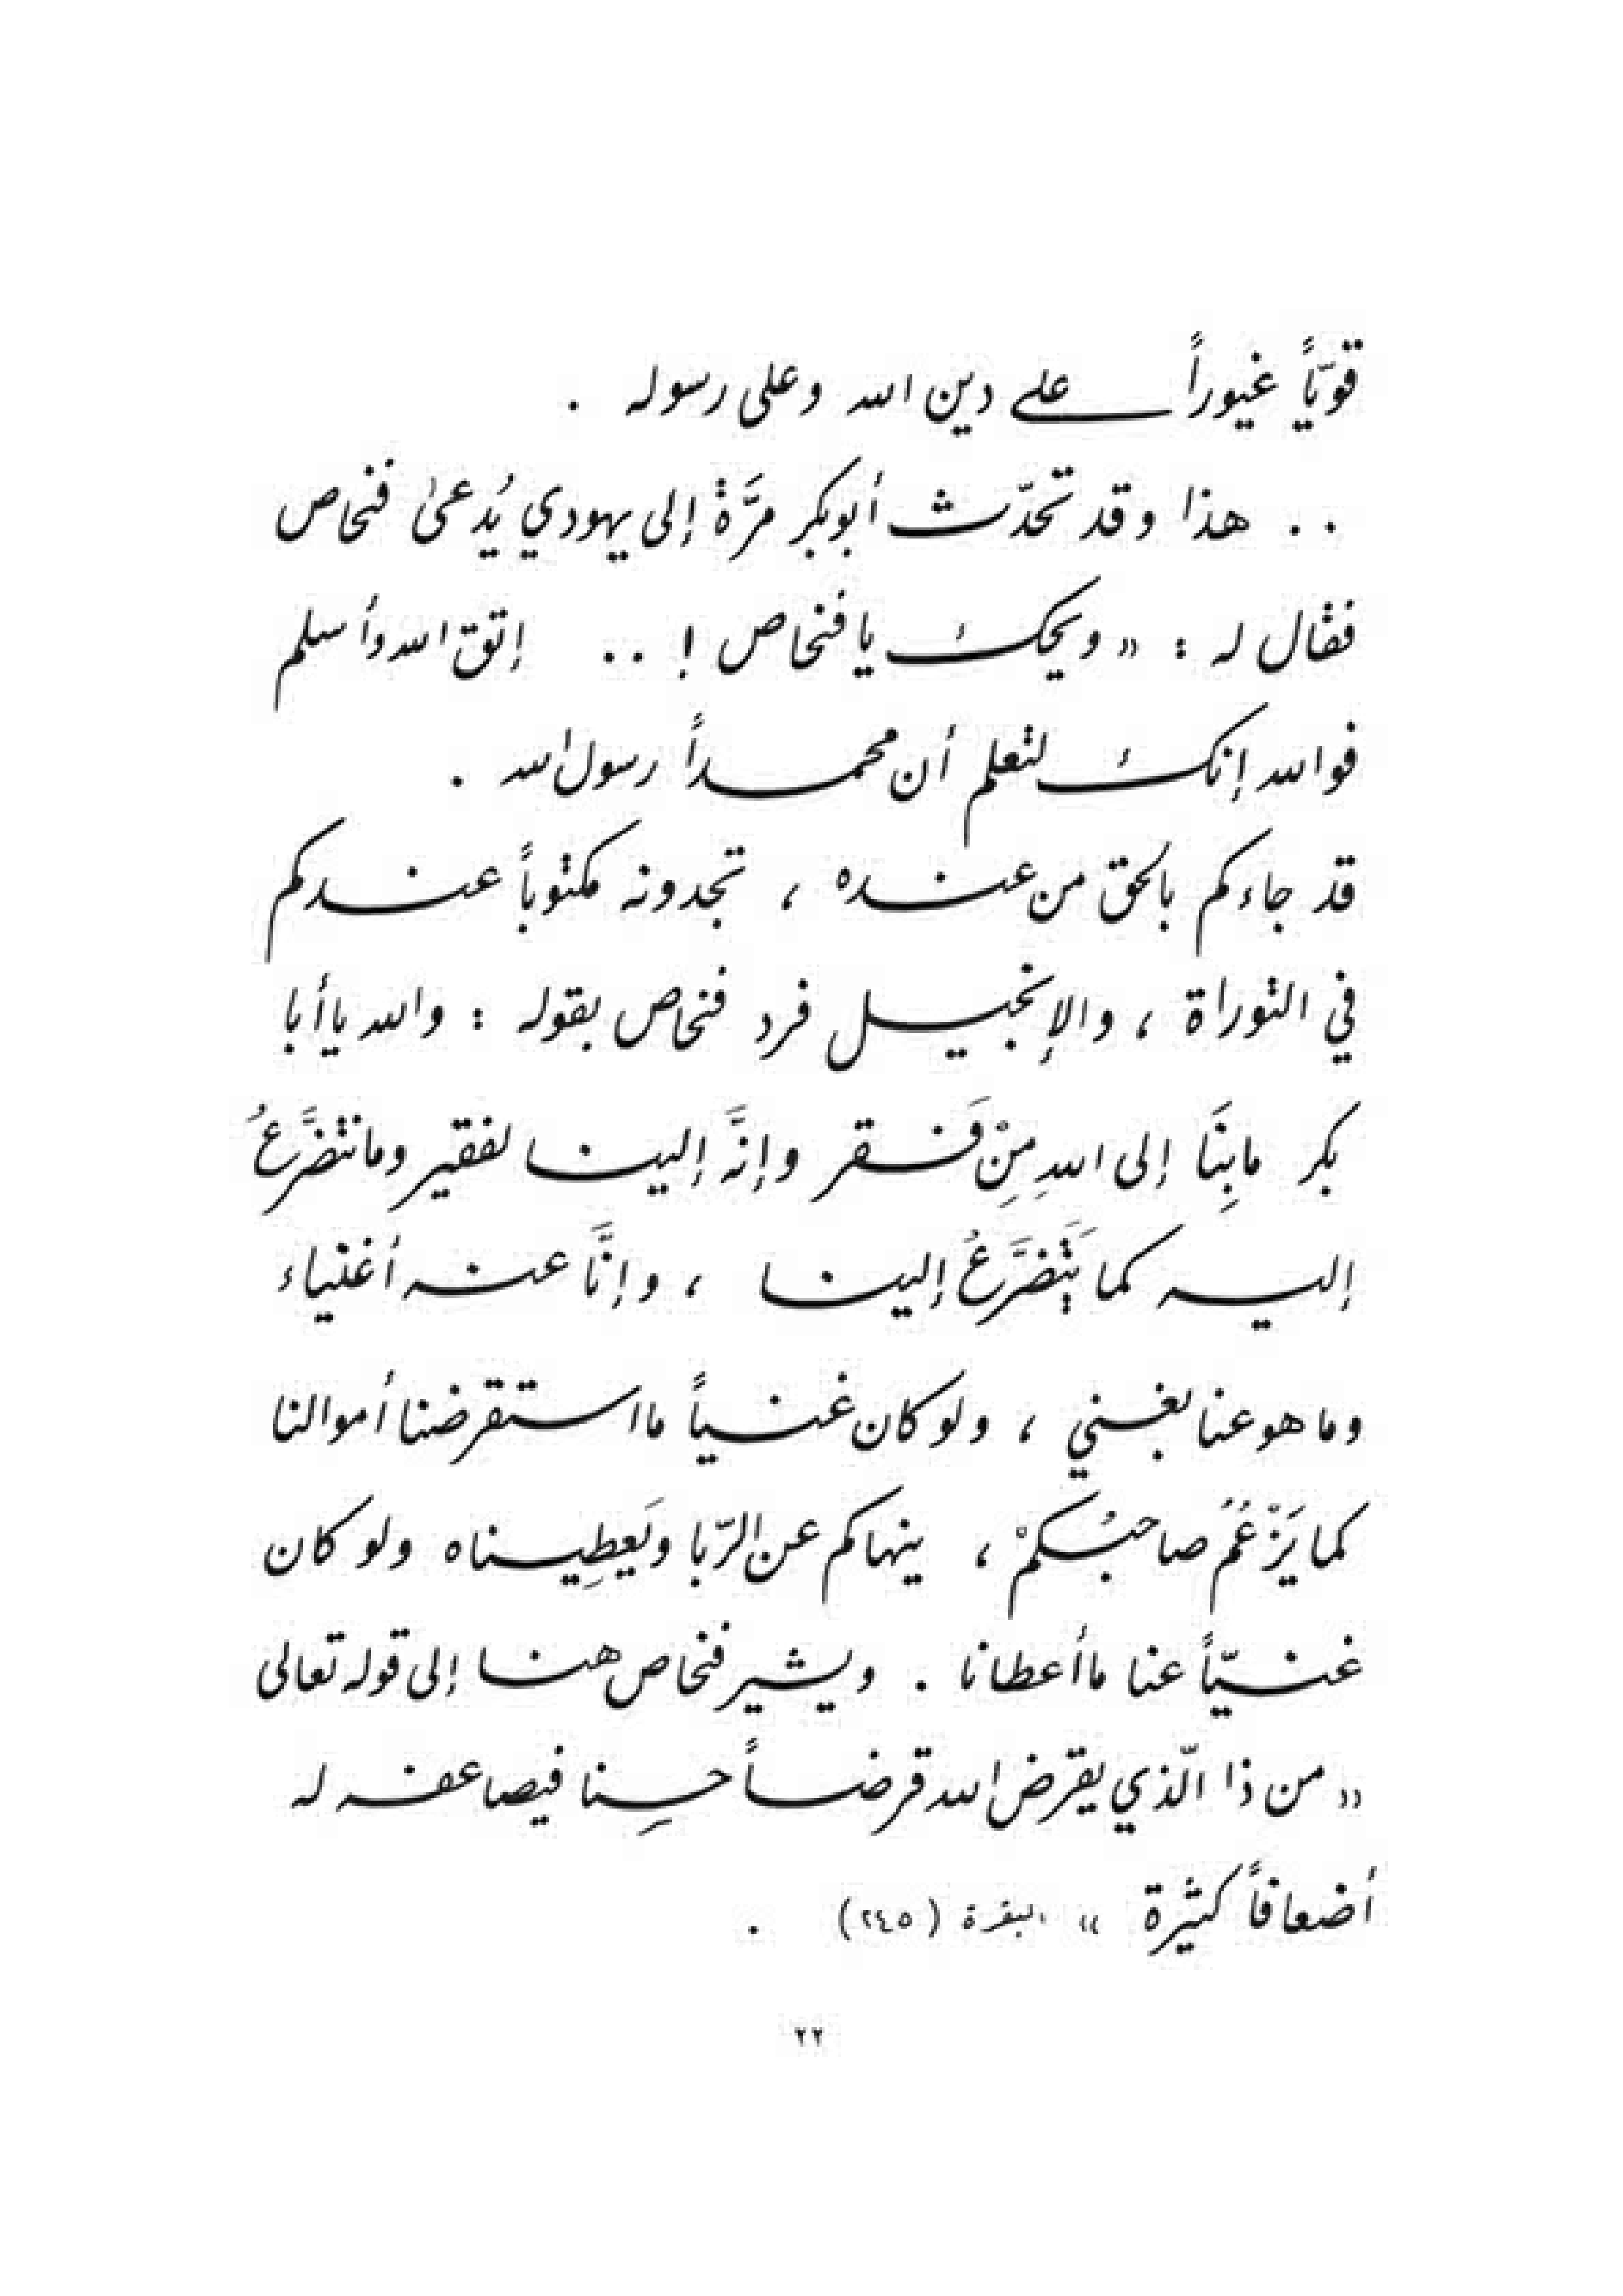 قويّاً غيوراً على دين الله وعلى رسوله .
. . هذا وقد تحدّث أبو بكر مرَّةً إلى يهودي يُدعىٰ فنحاص
فقال له : « ويحك يا فنحاص ! . . إتق الله وأسلم
فوالله إنك لتعلم أن محمداً رسول الله .
قد جاءكم بالحق من عنده ، تجدونه مكتوباً عندكم
في التوراة ، والإنجيل فرد فنحاص بقوله : والله يا أبا
بكر ما بِنَا إلى اللهِ مِنْ فَقر وإنَّه إلينا لفقير وما نتضَرَّعُ
إليه كما يَتَضَرَّعُ إلينا ، وإنَّا عنه أغنياء
وما هو عنا بغني ، ولو كان غنياً ما استقرضنا أموالنا
كما يَزْعُمُ صاحبُكمْ ، ينهاكم عن الرّبا ويَعطِيناه ولو كان
غنيّاً عنا ما أعطانا . ويشير فنحاص هنا إلى قوله تعالى
« من ذا الّذي يقرض الله قرضاً حسِنا فيصاعفه له
أضعافاً كثيرة » البقرة (٢٤٥) .
٢٢